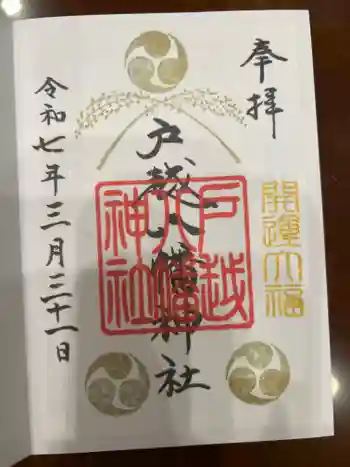 奉拝
開運大福
戸越八幡神社
戸越八幡神社
令和七年三月三十一日